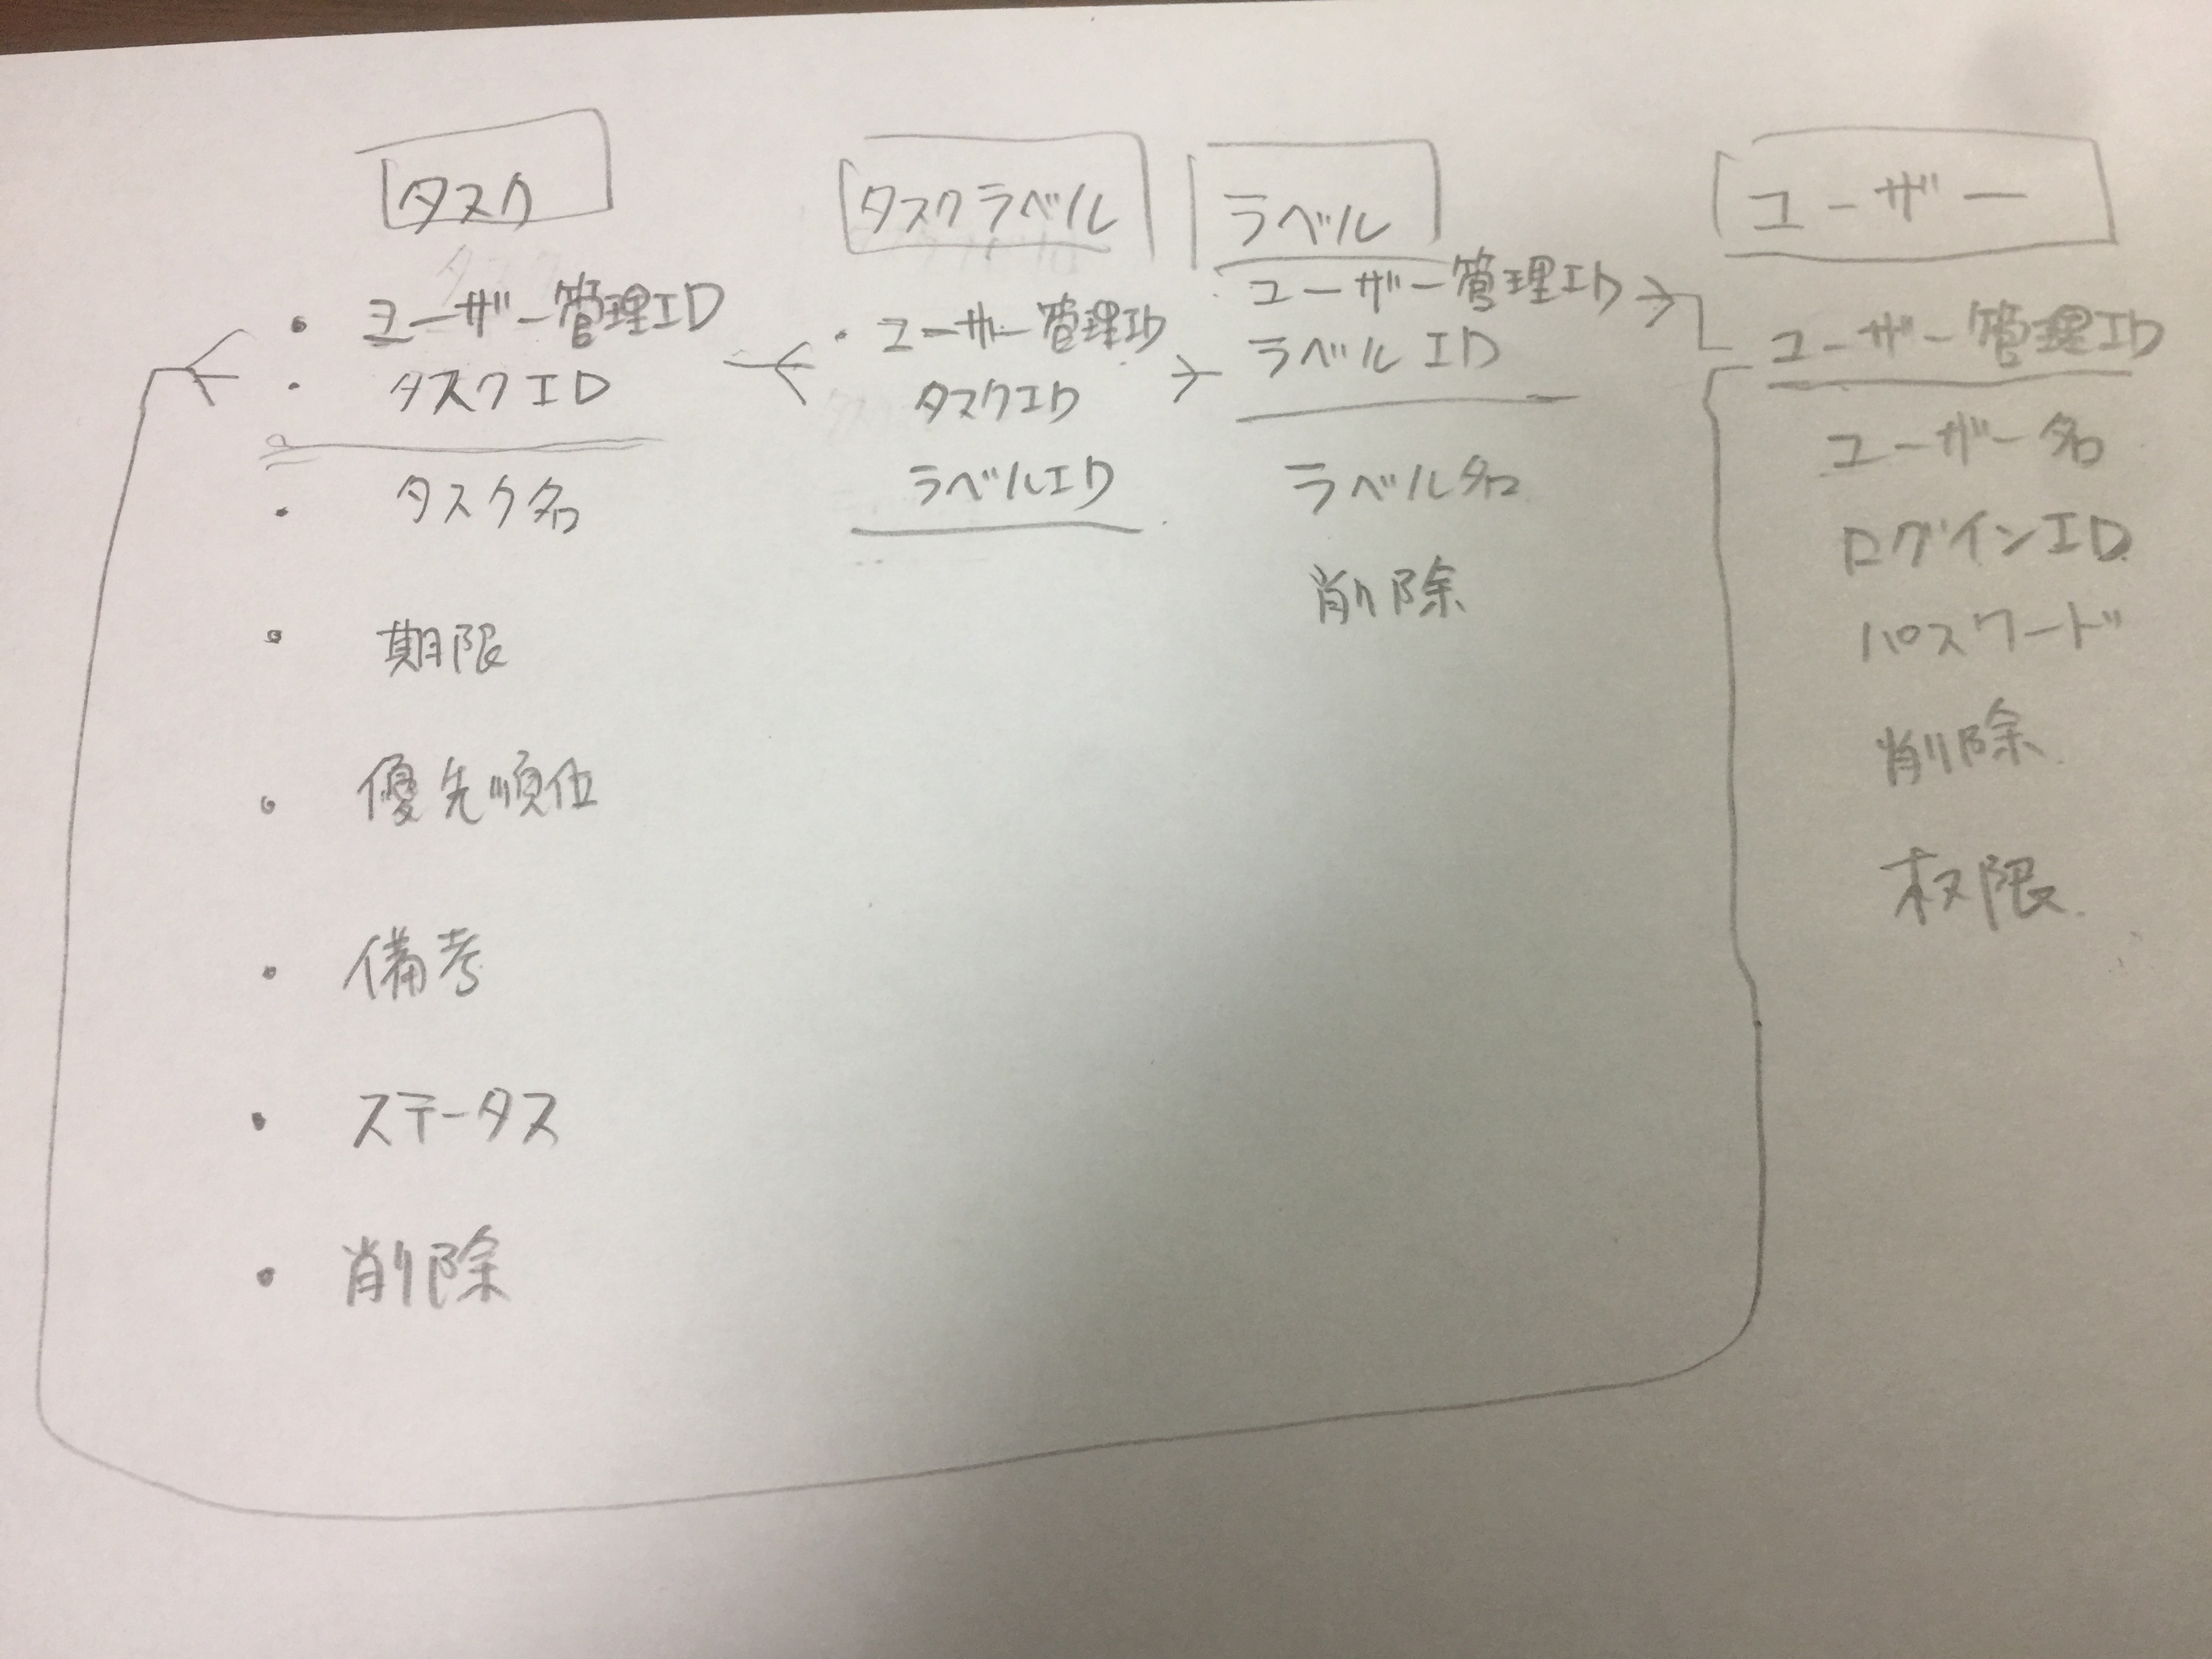 タスク
・ユーザー管理ID
・タスクID
・タスク名
・期限
・優先順位
・備考
・ステータス
・削除
タスクラベル
・ユーザー管理ID
タスクID
ラベルID
ラベル
ユーザー管理ID
ラベルID
ラベル名
削除
ユーザー
ユーザー管理ID
ユーザー名
ログインID
パスワード
削除
权限